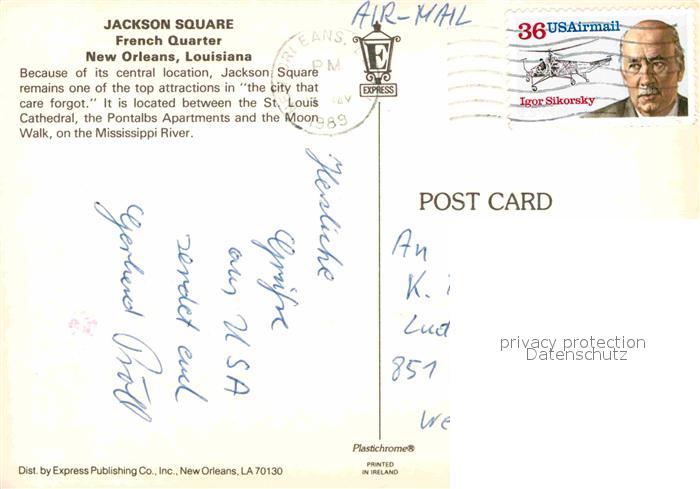 JACKSON SQUARE
French Quarter
New Orleans, Louisiana
Because of its central location, Jackson Square
remains one of the top attractions in "the city that
care forgot." It is located between the St. Louis
Cathedral, the Pontalbs Apartments and the Moon
Walk, on the Mississippi River.
AIR-MAIL
ORLEANS,
PM
1989
E
EXPRESS
36 USAirmail
Igor Sikorsky
POST CARD
Herzliche
Grüße
aus USA
sendet euch
Gerhard Pröll
An
K.
851
We
privacy protection
Datenschutz
Plastichrome®
PRINTED
IN IRELAND
Dist. by Express Publishing Co., Inc., New Orleans, LA 70130